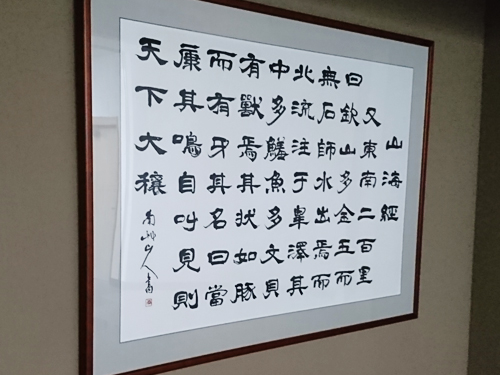 山海經
又東南二百里
曰欽山多金玉而
無石師水出焉而
北流注于皐澤其
中多鱃魚多文貝
有獸焉其狀如豚
而有牙其名曰當
康其鳴自叫見則
天下大穰